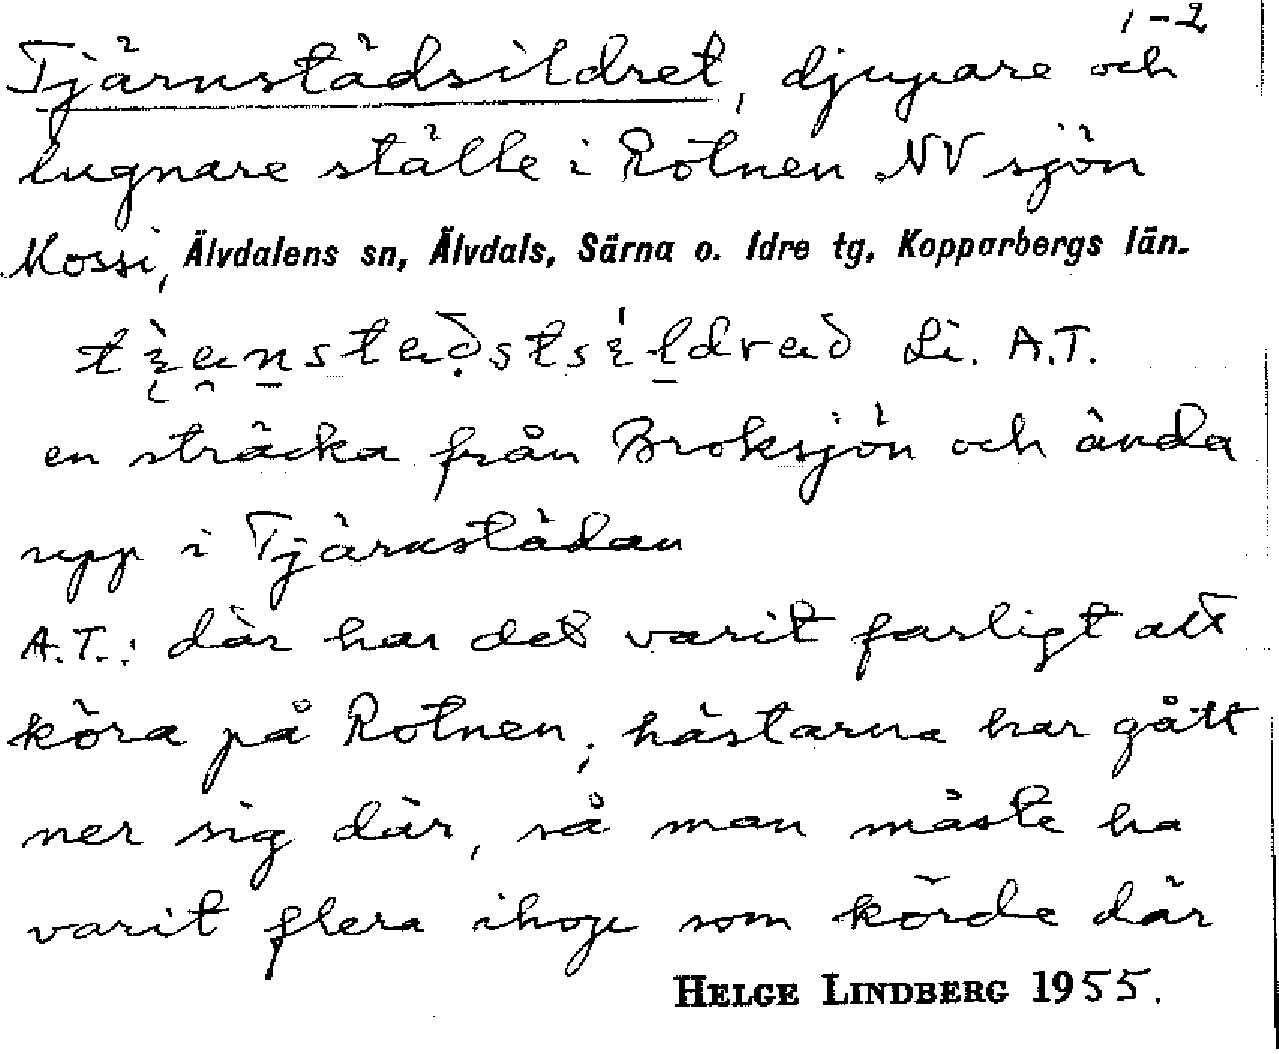 1-2
Tjärnstädsildret, djupare och
lugnare ställe i Rötnen NV sjön
Mossi, Älvdalens sn, Älvdals, Särna o. Idre tg, Kopparbergs län.
Li. A.T.
en sträcka från Broksjön och ända
upp i Tjärnstädan
A.T.: där har det varit farligt att
köra på Rötnen; hästarna har gått
ner sig där, så man måste ha
varit flera ihop som körde där
HELGE LINDBERG 1955.